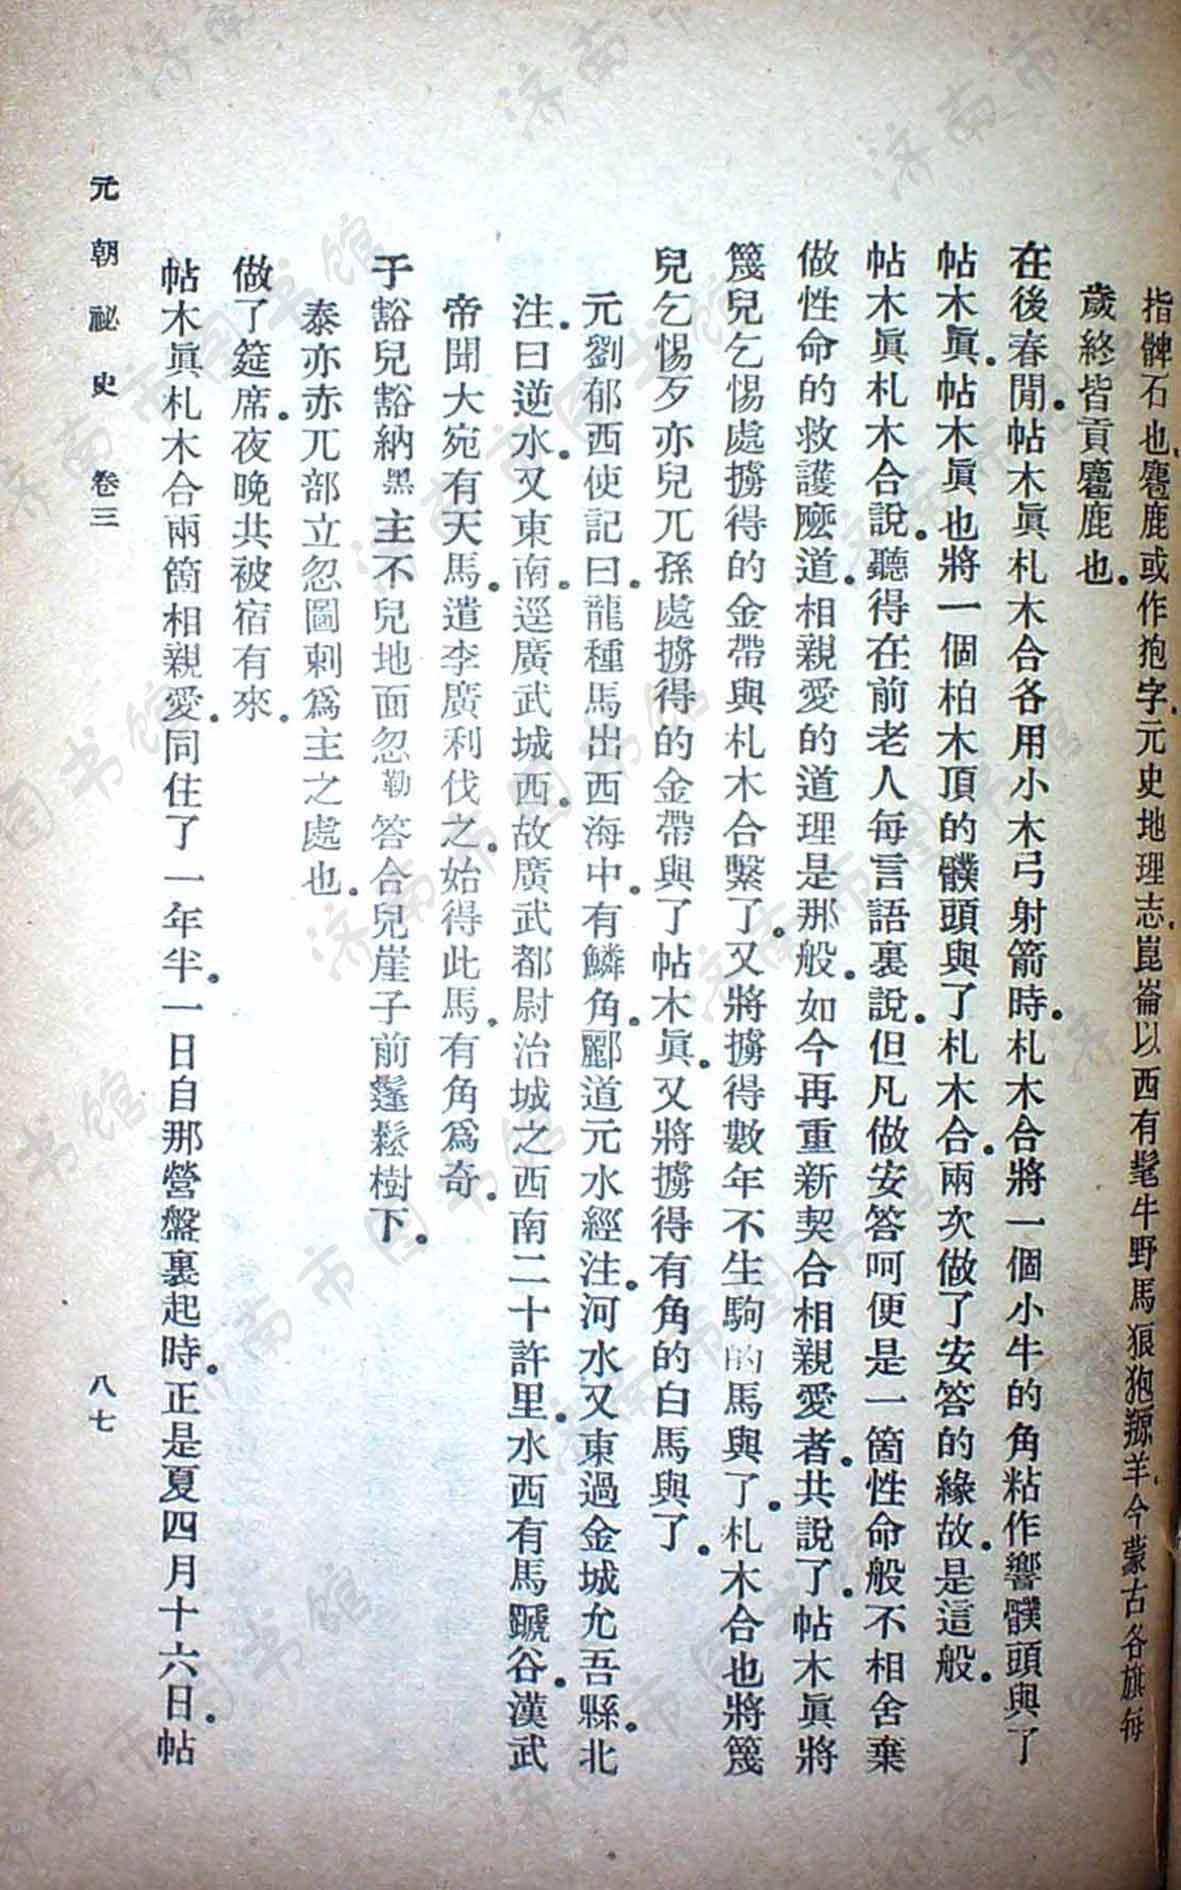 指髀石也麅鹿或作狍字元史地理志崑崙以西有髦牛野馬狼狍羱羊今蒙古各旗每
歲終皆貢麅鹿也
在後春閒帖木眞札木合各用小木弓射箭時札木合將一個小牛的角粘作響髏頭與了
帖木眞帖木眞也將一個柏木頂的髏頭與了札木合兩次做了安答的緣故是這般
帖木眞札木合說聽得在前老人每言語裏說但凡做安答呵便是一箇性命般不相舍棄
做性命的救護麼道相親愛的道理是那般如今再重新契合相親愛者共說了帖木眞將
篾兒乞惕處擄得的金帶與札木合繫了又將擄得數年不生駒的馬與了札木合也將篾
兒乞惕歹亦兒兀孫處擄得的金帶與了帖木眞又將擄得有角的白馬與了
元劉郁西使記曰龍種馬出西海中有鱗角酈道元水經注河水又東過金城允吾縣北
注曰逆水又東南逕廣武城西故廣武都尉治城之西南二十許里水西有馬蹏谷漢武
帝聞大宛有天馬遣李廣利伐之始得此馬有角爲奇
于豁兒豁納黑主不兒地面忽勒答合兒崖子前蓬鬆樹下
泰亦赤兀部立忽圖剌爲主之處也
做了筵席夜晚共被宿有來
帖木眞札木合兩箇相親愛同住了一年半一日自那營盤裏起時正是夏四月十六日帖
元朝祕史 卷三 八七
济南市图书馆